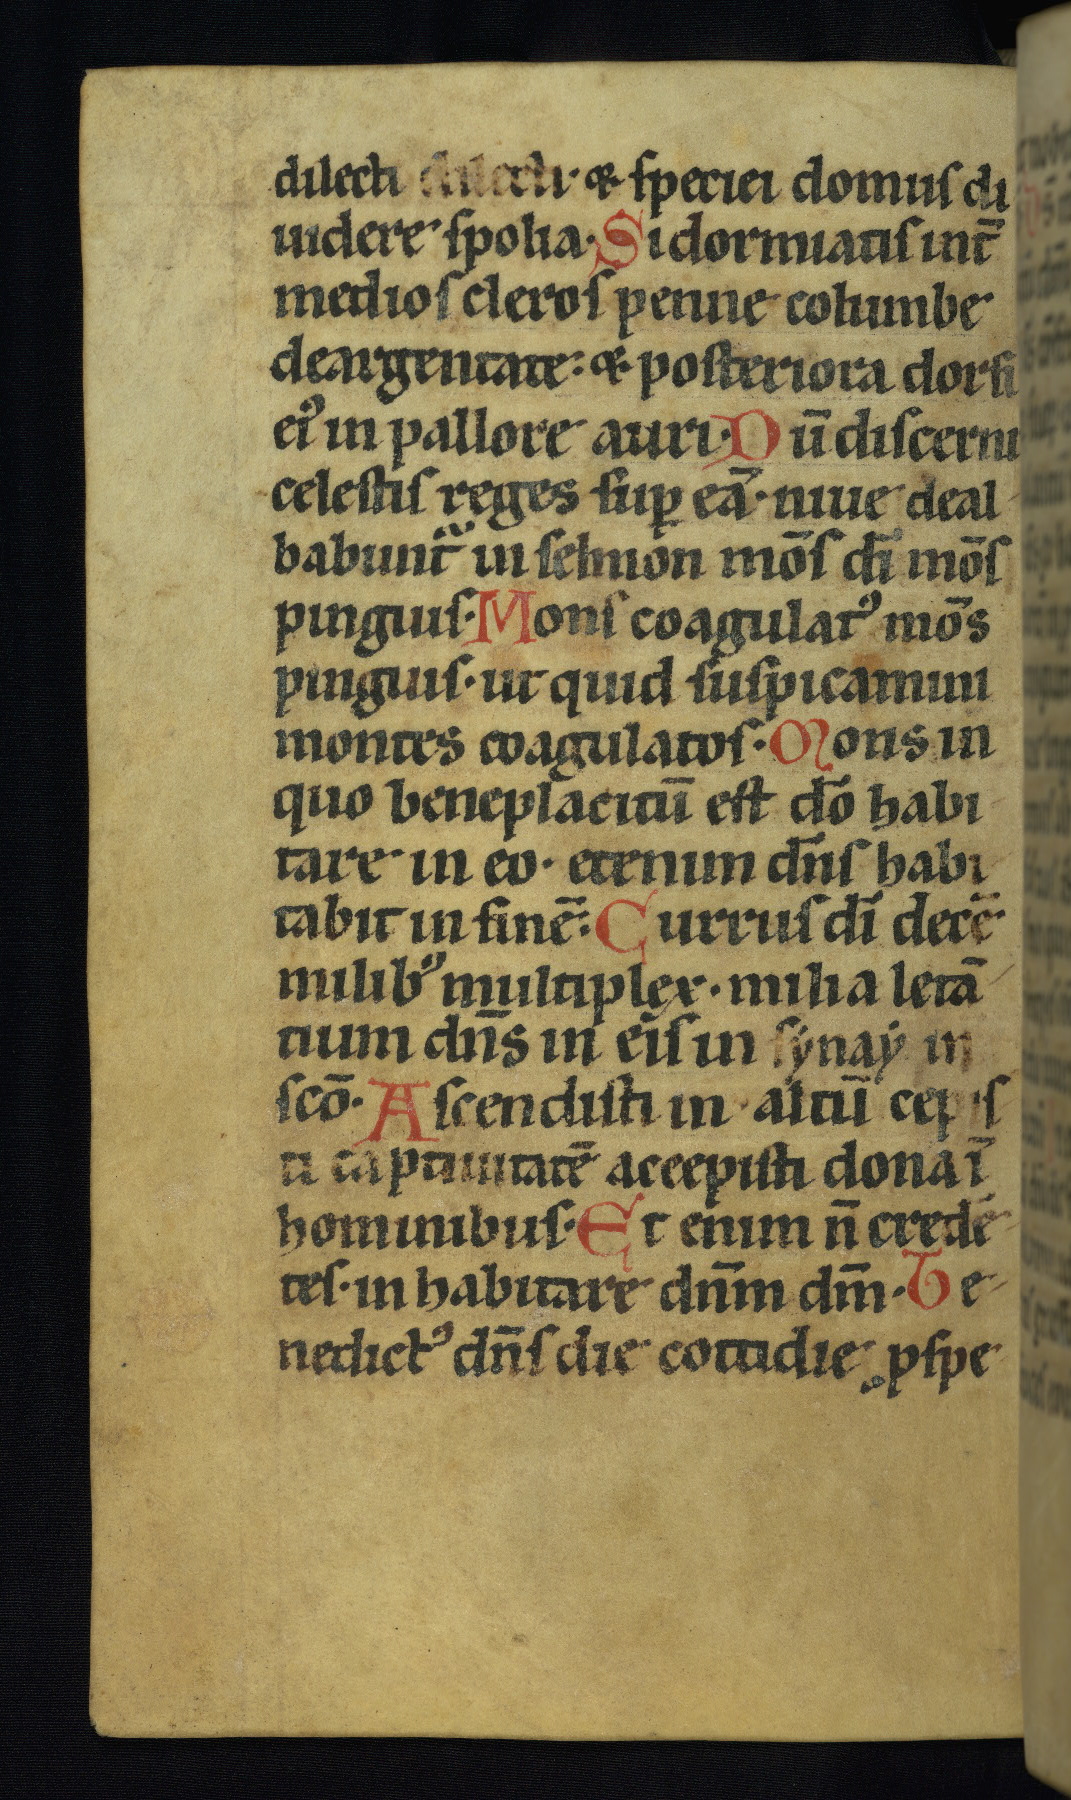 dilecti dilecti· & speciei domus di
uidere spolia· Si dormiatis int̄
medios cleros penne columbe
deargentate: & posteriora dorsi
ei᷒ in pallore auri· Dū discerni
celestis reges sup̲ eā· niue deal
babunt᷑ in selmon mōs dī mōs
pinguis· Mons coagulat᷒ mōs
pinguis· ut quid suspicamini
montes coagulatos· Mons in
quo beneplacitū est dō habi
tare in eo· etenim dn̄s habi
tabit in finē: Currus dī decē
milib᷒ multiplex· milia letā
tium dn̄s in eis in synaẏ in
scō· Ascendisti in altū cepis
ti captiuitatē accepisti dona ī
hominibus· Et enim n̄ credē
tes· in habitare dn̄m dm̄· Be
nedict᷒ dn̄s die cottidie ꝓspe